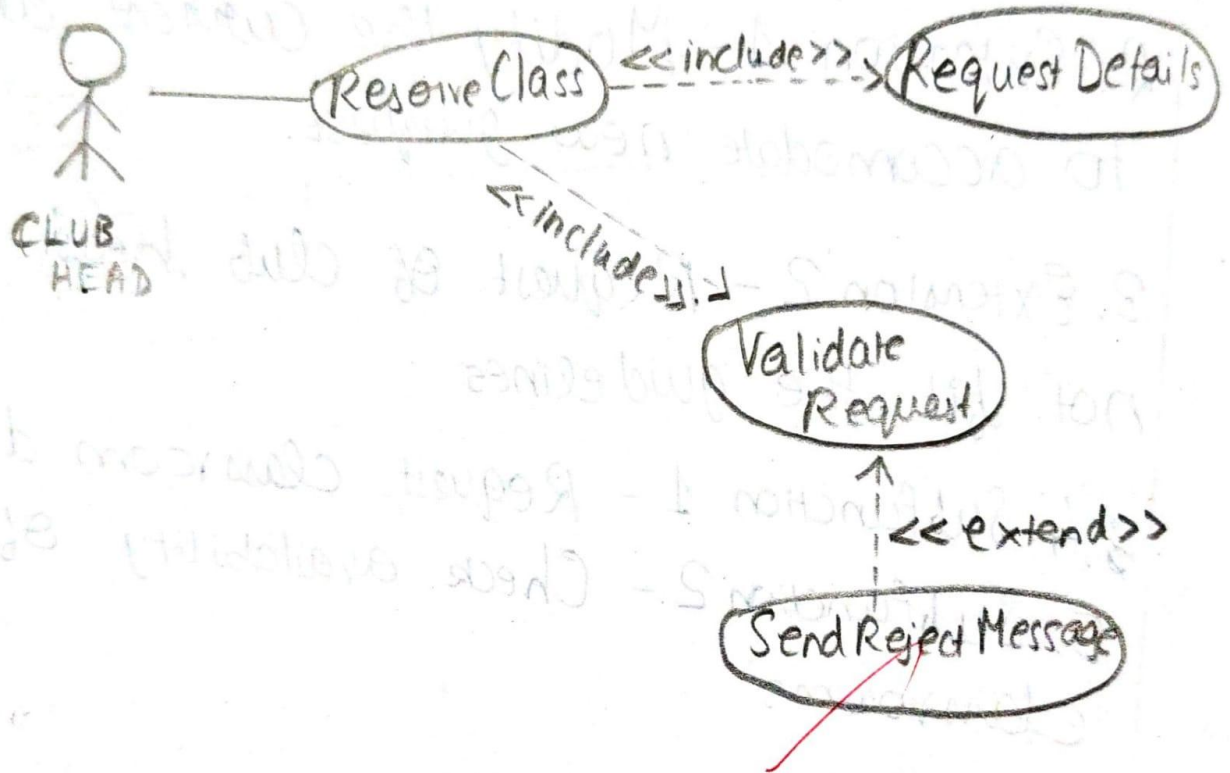 Reserve Class
<<include>>
Request Details
CLUB
HEAD
<<include>>
Validate
Request
<<extend>>
Send Reject Message